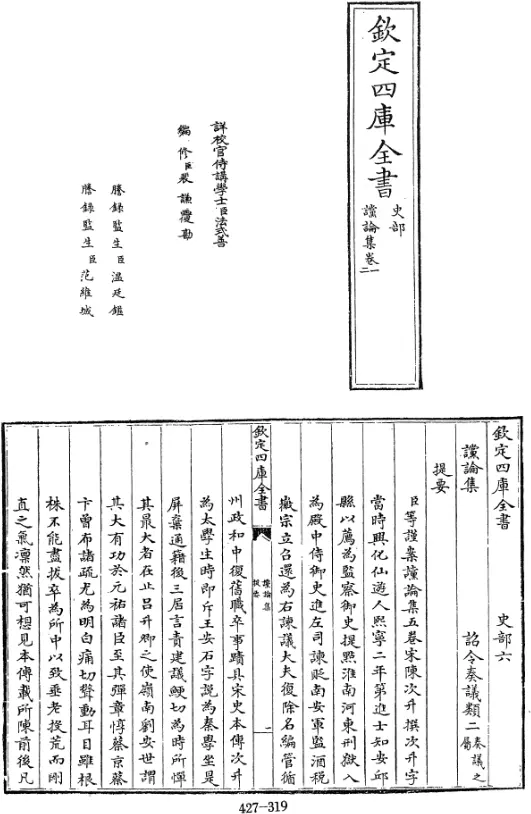 欽定四庫全書
史部
讜論集卷一二
詳校官侍講學士臣法式善
編修臣裴謙覆勘
謄錄監生臣溫廷鑑
謄錄監生臣范維城
欽定四庫全書 史部六
讜論集 詔令奏議類二奏議之屬
提要
臣等謹案讜論集五卷宋陳次升撰次升字
當時興化仙遊人熙寧二年第進士知安邱
縣以薦為監察御史提點淮南河東刑獄入
為殿中侍御史進左司諫貶南安軍監酒稅
徽宗立召還為右諫議大夫復除名編管循
欽定四庫全書 讜論集 提要 一
州政和中復舊職卒事蹟具宋史本傳次升
為太學生時即斥王安石字說為秦學坐是
屏棄通籍後三居言責建議鯁切為時所憚
其最大者在止呂升卿之使嶺南劉安世謂
其大有功於元祐諸臣至其彈章惇蔡京蔡
卞曾布諸疏尤為明白痛切聳動耳目雖根
株不能盡拔卒為所中以致垂老投荒而剛
直之氣凜然猶可想見本傳載所陳前後凡
427-319